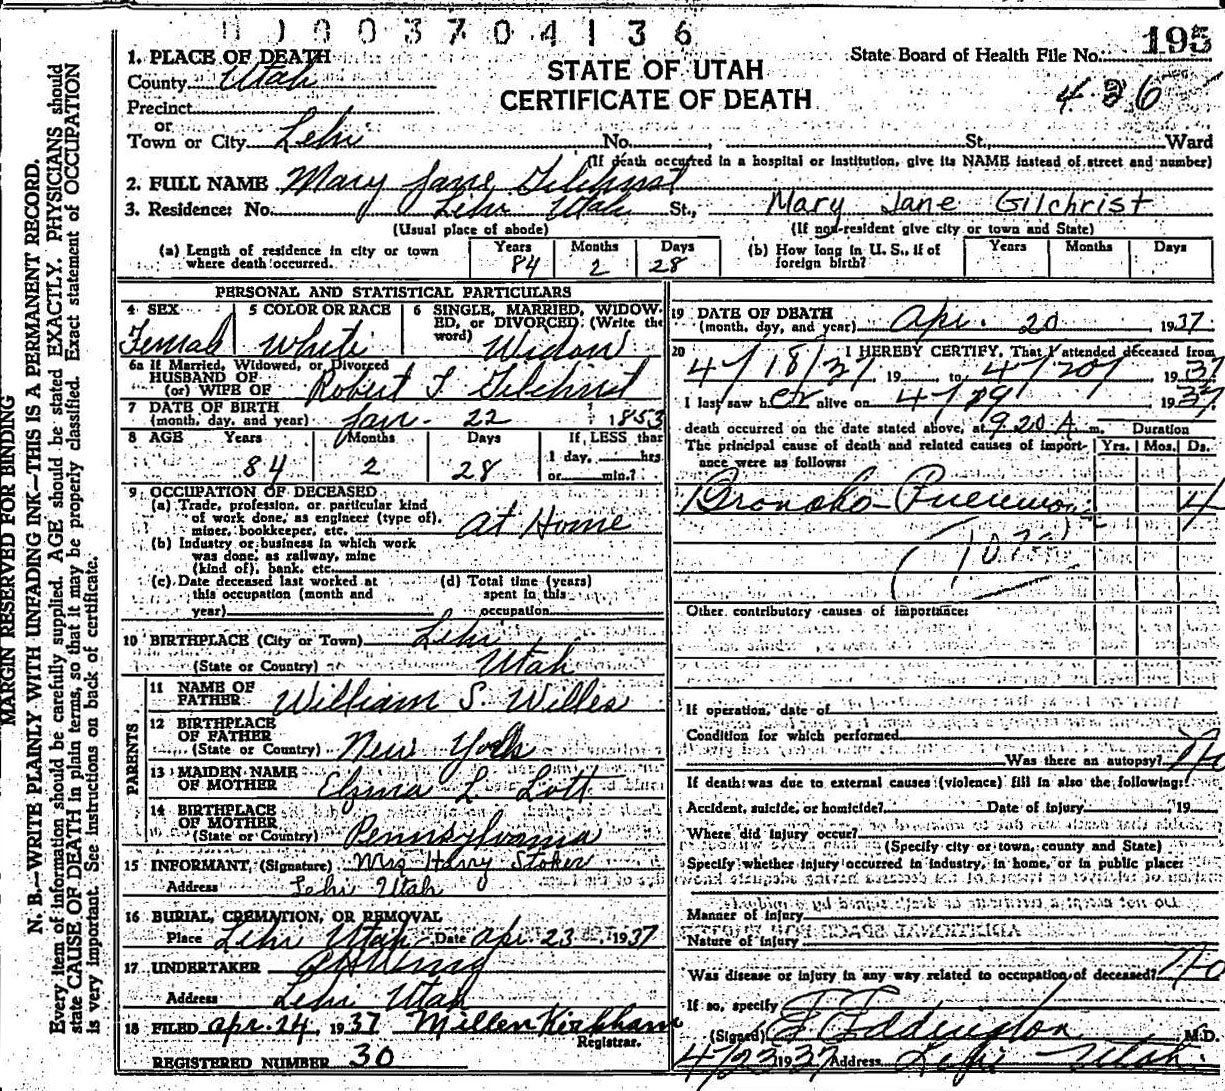 0 0 3 7 0 4 1 3 6
State Board of Health File No. 195
436
STATE OF UTAH
CERTIFICATE OF DEATH
1. PLACE OF DEATH
County Utah
Precinct
or
Town or City Lehi No. , St., Ward
(If death occurred in a hospital or institution, give its NAME instead of street and number)
2. FULL NAME Mary Jane Gilchrist
3. Residence: No. Lehi Utah St., Mary Jane Gilchrist
(Usual place of abode) (If non-resident give city or town and State)
(a) Length of residence in city or town where death occurred. Years 84 Months 2 Days 28
(b) How long in U. S., if of foreign birth? Years Months Days
PERSONAL AND STATISTICAL PARTICULARS
4 SEX Female
5 COLOR OR RACE White
6 SINGLE, MARRIED, WIDOWED, or DIVORCED. (Write the word) Widow
6a If Married, Widowed, or Divorced
HUSBAND OF
(or) WIFE OF Robert T. Gilchrist
7 DATE OF BIRTH
(month, day, and year) Jan. 22 1853
8 AGE Years 84 Months 2 Days 28
If LESS than 1 day, hrs or min.?
9 OCCUPATION OF DECEASED
(a) Trade, profession, or particular kind of work done, as engineer (type of), miner, bookkeeper, etc. at Home
(b) Industry or business in which work was done, as railway, mine (kind of), bank, etc.
(c) Date deceased last worked at this occupation (month and year)
(d) Total time (years) spent in this occupation
10 BIRTHPLACE (City or Town) Lehi
(State or Country) Utah
PARENTS
11 NAME OF FATHER William S. Willes
12 BIRTHPLACE OF FATHER
(State or Country) New York
13 MAIDEN NAME OF MOTHER L. Lott
14 BIRTHPLACE OF MOTHER
(State or Country) Pennsylvania
15 INFORMANT, (Signature) Mrs Henry Stoker
Address Lehi Utah
16 BURIAL, CREMATION, OR REMOVAL
Place Lehi Utah Date Apr. 23 1937
17 UNDERTAKER
Address Lehi Utah
18 FILED Apr. 24, 1937 Millen Kirkham
Registrar.
REGISTERED NUMBER 30
19 DATE OF DEATH
(month, day, and year) Apr. 20 1937
20 I HEREBY CERTIFY, That I attended deceased from
4/18/37 19 to 4/20/ 1937
I last saw her alive on 4/ 1937
death occurred on the date stated above, at 9 20 A m. Duration
The principal cause of death and related causes of importance were as follows: Yrs. Mos. Ds.
Broncho-Pneumonia 4
Other contributory causes of importance:
If operation, date of
Condition for which performed
Was there an autopsy? No
If death was due to external causes (violence) fill in also the following:
Accident, suicide, or homicide? Date of injury 19
Where did injury occur?
(Specify city or town, county and State)
Specify whether injury occurred in industry, in home, or in public place:
Manner of injury
Nature of injury
Was disease or injury in any way related to occupation of deceased? No
If so, specify
(Signed) Eddington M.D.
4/23 1937 Address Lehi Utah.
MARGIN RESERVED FOR BINDING
N. B.—WRITE PLAINLY WITH UNFADING INK—THIS IS A PERMANENT RECORD.
Every item of information should be carefully supplied. AGE should be stated EXACTLY. PHYSICIANS should
state CAUSE OF DEATH in plain terms, so that it may be properly classified. Exact statement of OCCUPATION
is very important. See instructions on back of certificate.